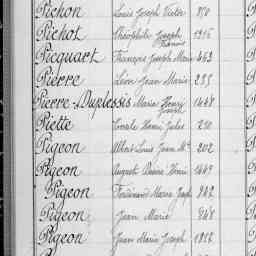 Pichon Louis Joseph Victor 850
Pichot Théophile Joseph Francis 1916
Picquart François Joseph Marie 463
Pierre Léon Jean Marie 255
Pierre-Duplessis Marie Henry Joseph 1448
Piette Henri Jules 210
Pigeon Albert Louis Jean Me 202
Pigeon August Pierre 1449
Pigeon Ferdinand Marie Joseph 942
Pigeon Jean Marie 848
Pigeon Jean Marie Joseph